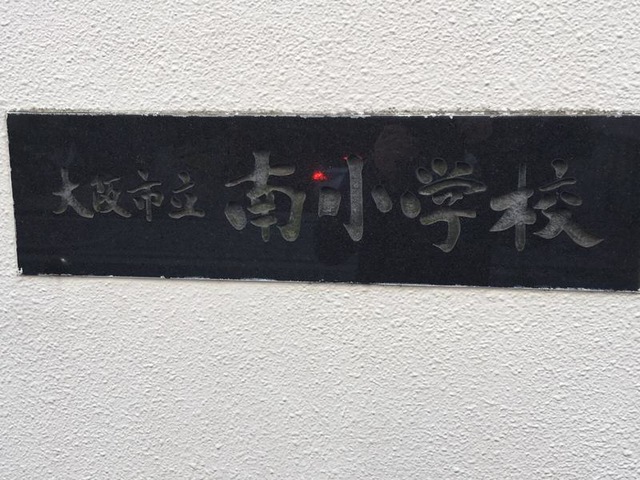 大阪市立南小学校